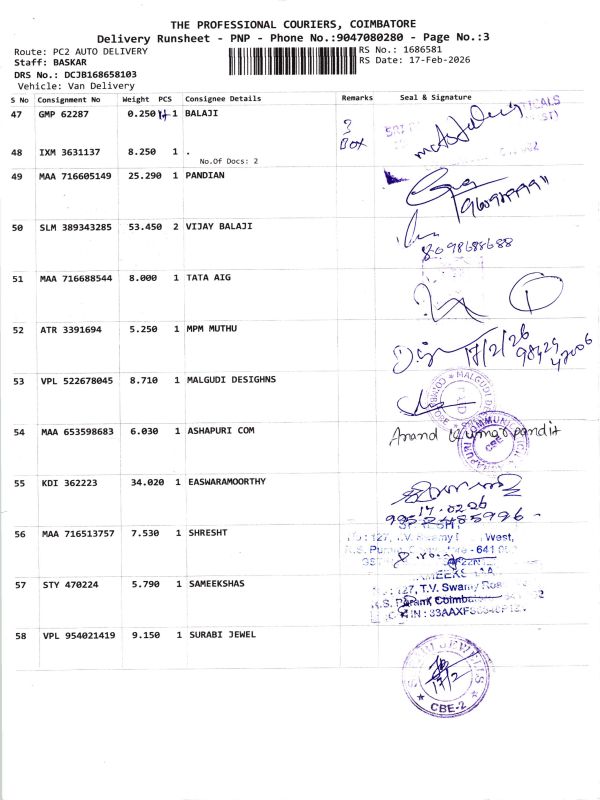 THE PROFESSIONAL COURIERS, COIMBATORE
Delivery Runsheet - PNP - Phone No.:9047080280 - Page No.:3
Route: PC2 AUTO DELIVERY RS No.: 1686581
Staff: BASKAR RS Date: 17-Feb-2026
DRS No.: DCJB168658103
Vehicle: Van Delivery
S No Consignment No Weight PCS Consignee Details Remarks Seal & Signature
47 GMP 62287 0.250 1 BALAJI
Box
48 IXM 3631137 8.250 1 .
No.Of Docs: 2
49 MAA 716605149 25.290 1 PANDIAN
50 SLM 389343285 53.450 2 VIJAY BALAJI
8098688688
51 MAA 716688544 8.000 1 TATA AIG
52 ATR 3391694 5.250 1 MPM MUTHU
17/2/26
53 VPL 522678045 8.710 1 MALGUDI DESIGHNS
54 MAA 653598683 6.030 1 ASHAPURI COM
Anand Kumar pandit
CBE
55 KDI 362223 34.020 1 EASWARAMOORTHY
17.02.26
56 MAA 716513757 7.530 1 SHRESHT
57 STY 470224 5.790 1 SAMEEKSHAS
127, T.V. Swamy
58 VPL 954021419 9.150 1 SURABI JEWEL
17/2
CBE-2